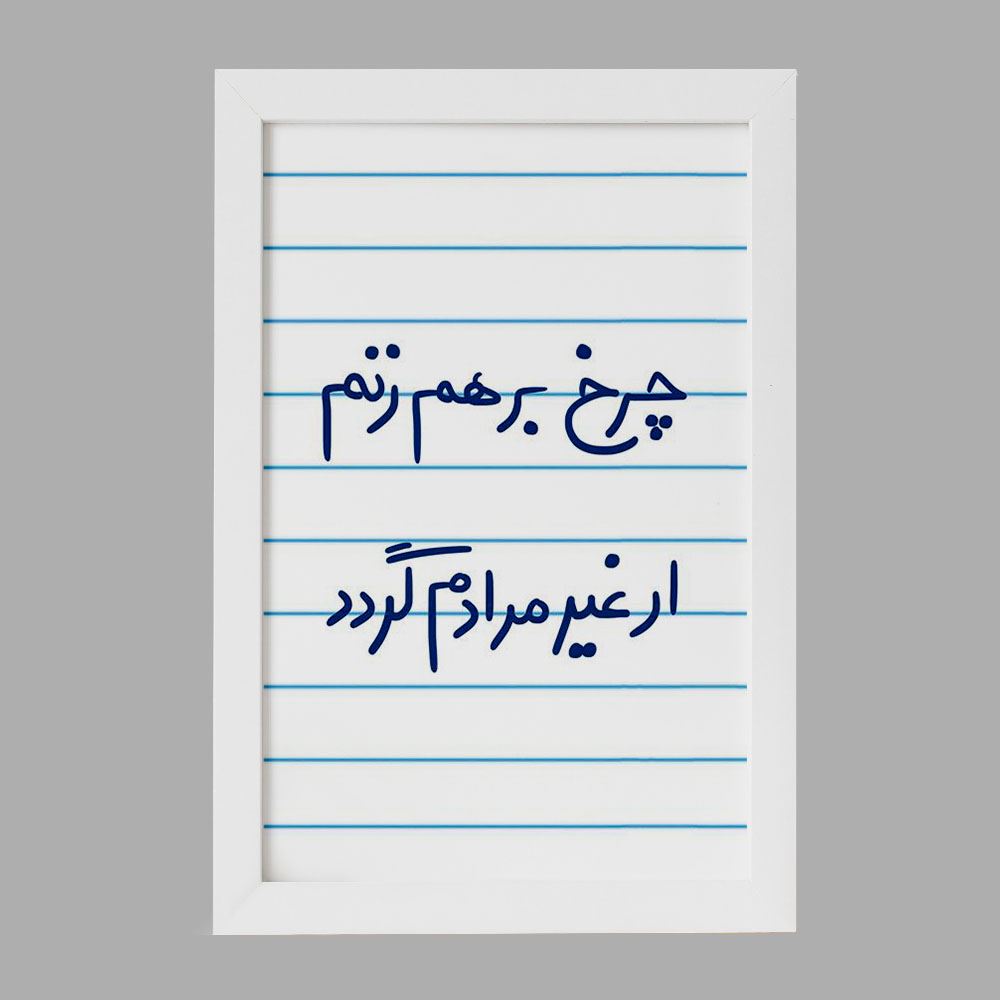 چرخ بر هم زنم
ار غیر مرادم گردد